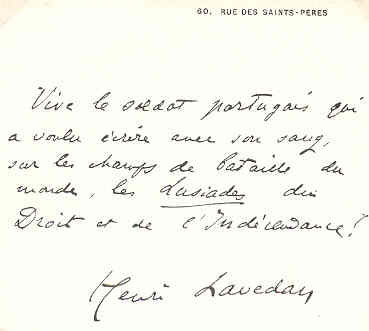 60, RUE DES SAINTS-PÈRES
Vive le soldat portugais qui
a voulu écrire avec son sang,
sur les champs de bataille du
monde, les Lusiades du
Droit et de l'Indépendance!
Henri Lavedan